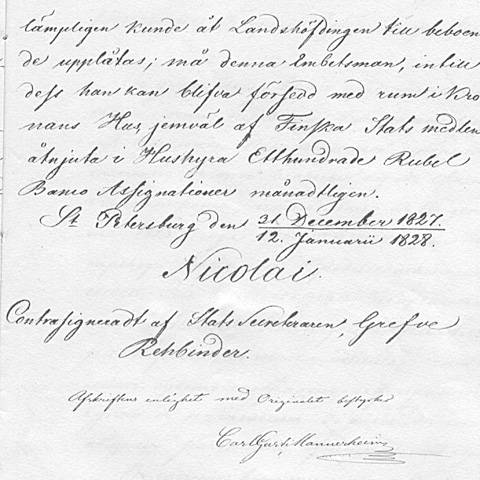 lämpligen kunde åt Landshöfdingen till beboen
de upplåtas; må denna Embetsman, intill
dess han kan blifva försedd med rum i Kro
nans Hus, jemväl af Finska Stats medlen
åtnjuta i Hushyra Etthundrade Rubel
Banco Assignationer månadtligen.
St Petersburg den 31. December 1827.
12. Januarii 1828.
Nicolai.
Contrasigneradt af Stats Secreteraren, Grefve
Rehbinder.
Afskriftens enlighet med Originalet bestyrker
Carl Gust. Mannerheim